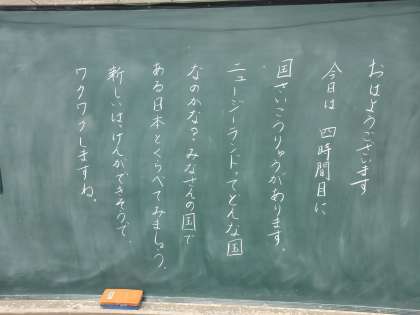 おはようございます
今日は 四時間目に
国さいこうりゅうがあります。
ニュージーランドってどんな国
なのかな？みなさんの国で
ある日本とくらべてみましょう。
新しいはっけんができそうで、
ワクワクしますね。